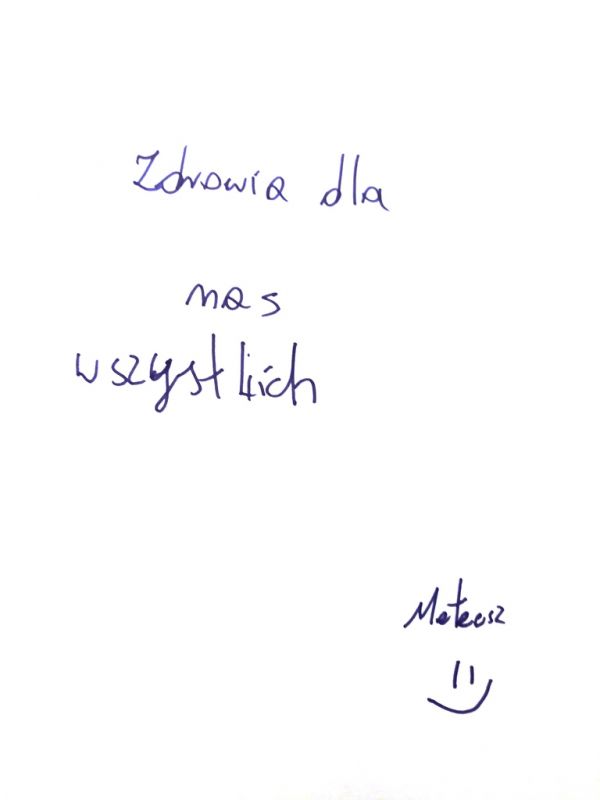 Zdrowia dla
nas
wszystkich
Mateusz